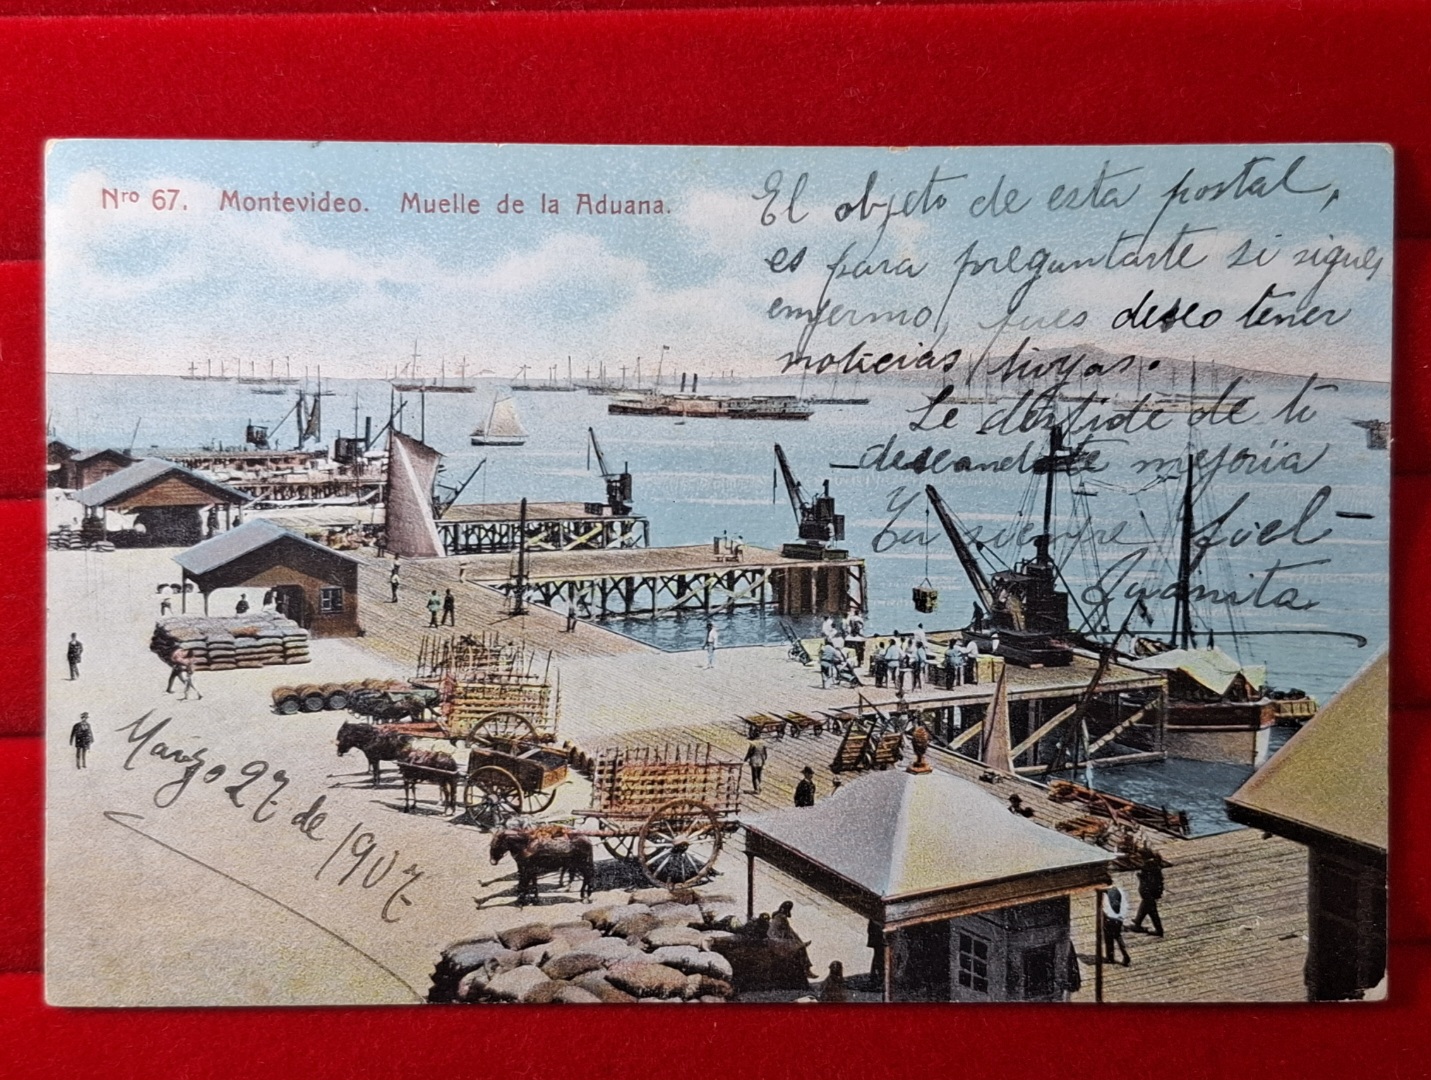 Nro 67. Montevideo. Muelle de la Aduana.
El objeto de esta postal,
es para preguntarte si sigues
enfermo, pues deseo tener
noticias tuyas.
Se despide de ti
deseandote mejoria
Tu siempre fiel
Juanita
Marzo 27 de 1907